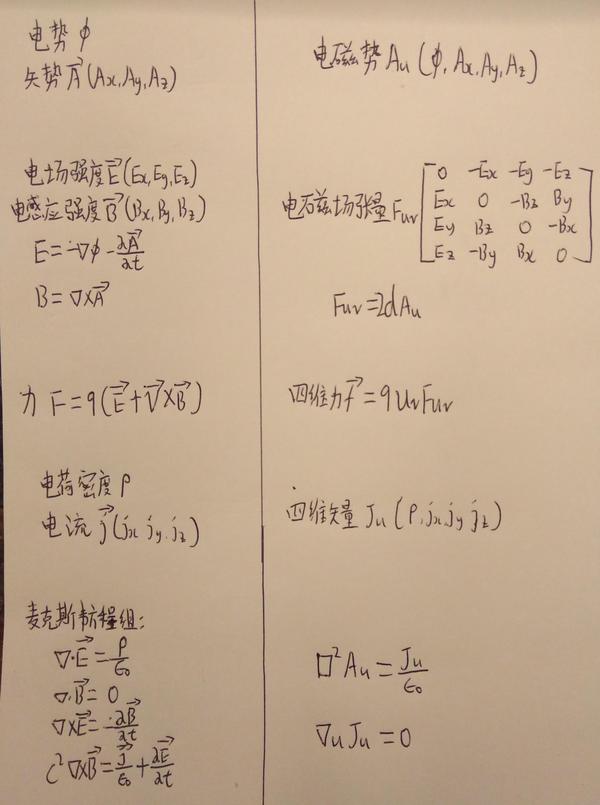 电势 ϕ
矢势 A⃗ (Ax, Ay, Az)
电场强度 E⃗ (Ex, Ey, Ez)
电感应强度 B⃗ (Bx, By, Bz)
E = -∇ϕ - ∂A⃗/∂t
B = ∇×A⃗
力 F = q(E⃗ + V⃗×B⃗)
电荷密度 ρ
电流 j⃗ (jx jy. jz)
麦克斯韦方程组:
∇·E⃗ = ρ/ε₀
∇·B⃗ = 0
∇×E⃗ = -∂B⃗/∂t
C²∇×B⃗ = j⃗/ε₀ + ∂E⃗/∂t
电磁势 Au (ϕ, Ax, Ay, Az)
电磁场张量 Fuv
0 -Ex -Ey -Ez
Ex 0 -Bz By
Ey Bz 0 -Bx
Ez -By Bx 0
Fuv = 2dAu
四维力 f⃗ = q Uv Fuv
四维矢量 Ju (ρ, jx, jy jz)
□²Au = Ju/ε₀
∇u Ju = 0